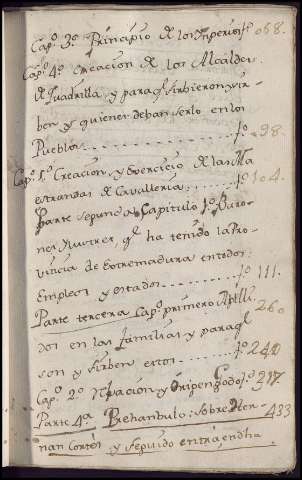 Cap.º 3.º Principio de los Imperios fº 068.
Cap.º 4.º Creacion de los Alcaldes
de Quadrilla y para q.e sirbieron y sir-
ben y quienes deban serlo en los
Pueblos . . . . . . . . . . . fº 98.
Cap.º 5.º Creacion, y Exercicio de las Ma
estranzas de Cavalleria . . . . . fº 104.
Parte segunda Capitulo 1.º Baro-
nes Ilustres, q.e ha tenido la Pro-
vincia de Extremadura en todos
Empleos y estados . . . . . . . fº 111.
Parte tercera Cap.º primero Apelli- 260
dos en las Familias y para q.e
son y sirben estos . . . . . . . fº 240
Cap.º 2.º Nacion y Origen Godo fº 217.
Parte 4.ª Prehambulo: sobre Her- 433
nan Cortés y seguido entra en dha